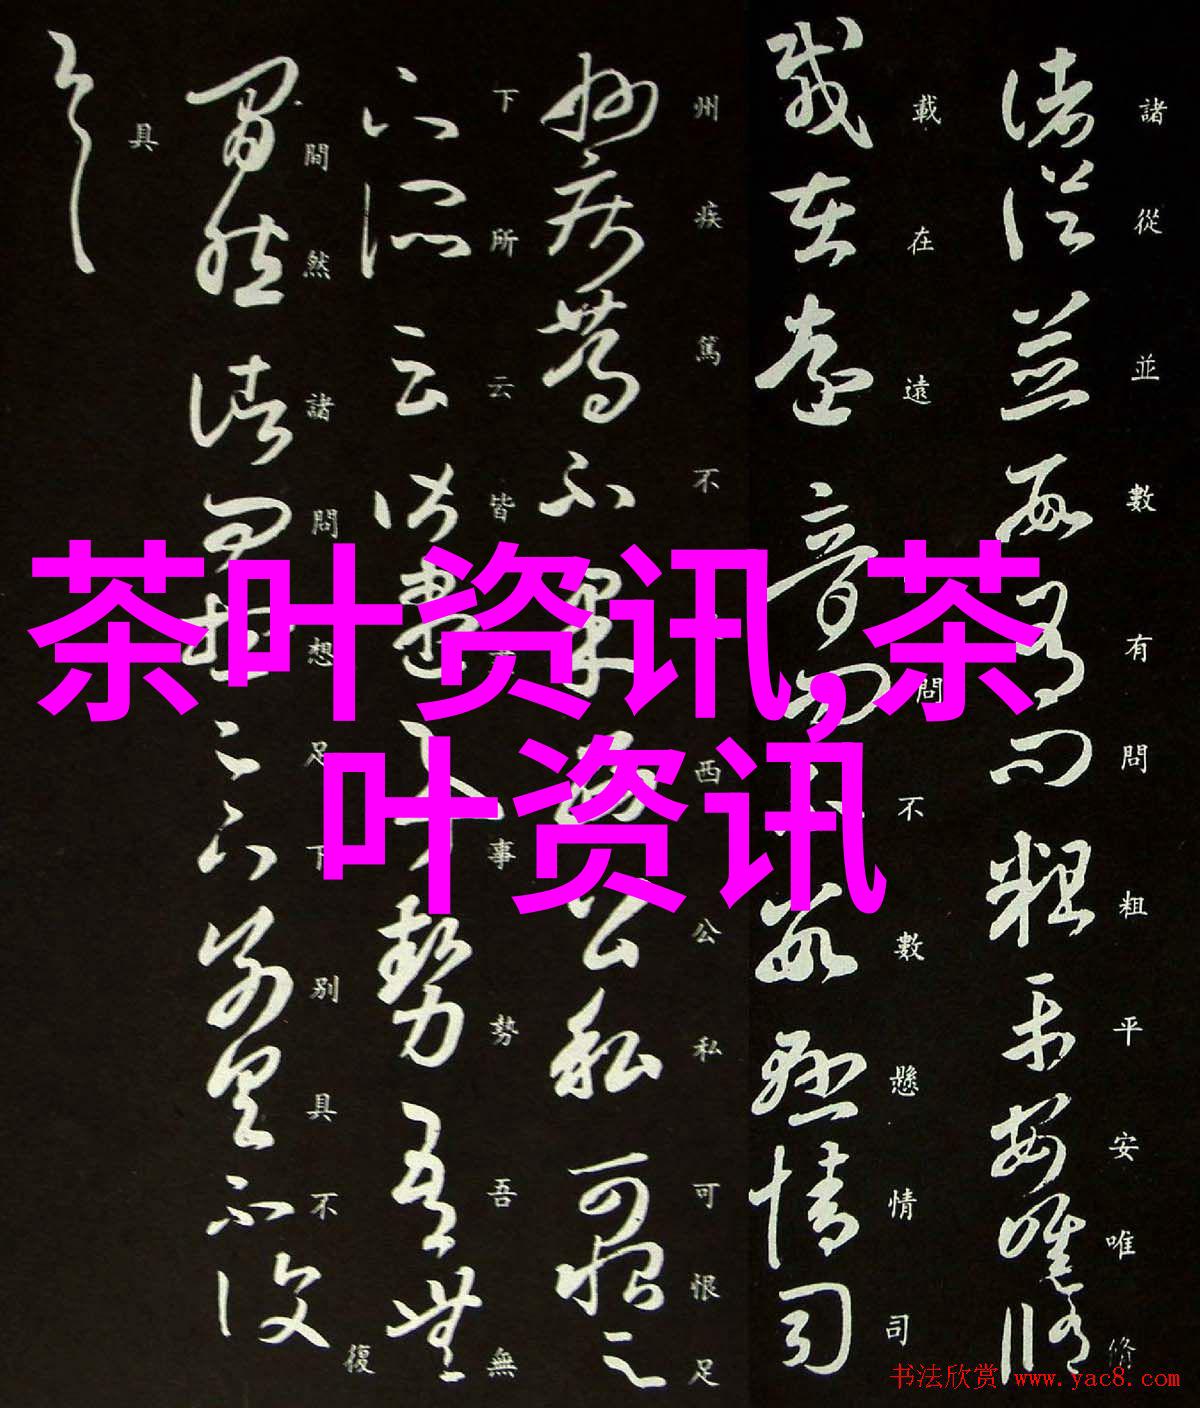 諸從並數有問粗平安唯修
載在遠音問不數懸情司
州疾篤不西公私可恨足
下所云皆事勢吾無
間然諸問想足下別具不復
具
茶叶资讯,茶
叶资讯
书法欣赏 www.yac8.com